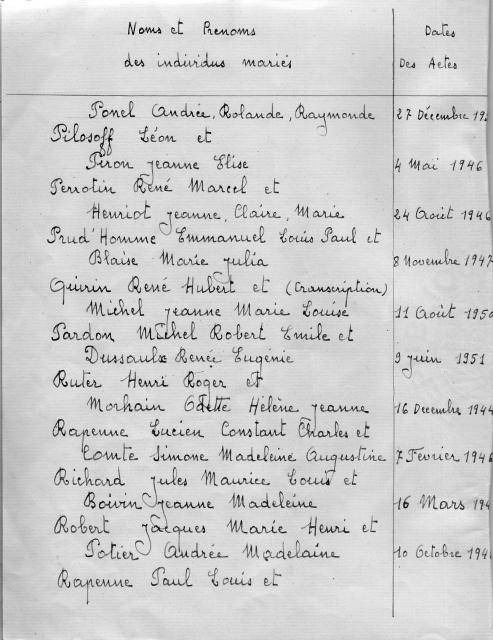 Noms et Prenoms Dates
des individus mariés Des Actes
Ponel Andrée, Rolande, Raymonde 27 Décembre 19
Pilosoff Léon et
Piron Jeanne Elise 4 Mai 1946
Perrotin René Marcel et
Henriot Jeanne, Claire, Marie 24 Août 1946
Prud'Homme Emmanuel Louis Paul et
Blaise Marie Julia 8 Novembre 1947
Quirin René Hubert et (Transcription)
Michel Jeanne Marie Louise 11 Août 1950
Pardon Michel Robert Emile et
Dussaulx Renée Eugénie 9 Juin 1951
Ruter Henri Roger et
Morhain Odette Hélène Jeanne 16 Decembre 1944
Rapenne Lucien Constant Charles et
Comte Simone Madeleine Augustine 7 Février 1946
Richard Jules Maurice Louis et
Boivin Jeanne Madeleine 16 Mars 194
Robert Jacques Marie Henri et
Potier Andrée Madelaine 10 Octobre 194
Rapenne Paul Louis et